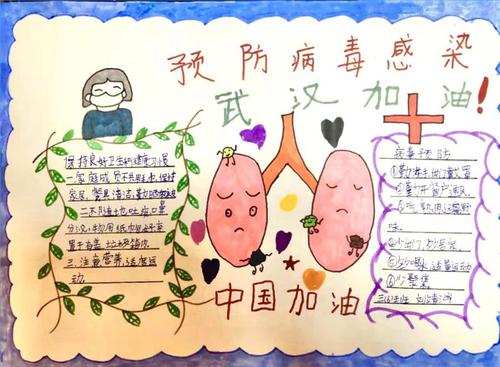 预防病毒感染
武汉加油!
保持良好卫生和健康习惯
一.家庭成员不共用毛巾,保持
家居、餐具清洁,勤
二不随地吐痰,口鼻
分泌物用纸巾包好弃
置于有盖垃圾箱内
三.注意营养,适度运
动.
病毒预防
①勤洗手出门戴口罩
②勤开窗户通风
③吃
味
④少出门,少
⑤多喝水,适量运动
⑥少聚集
中国加油